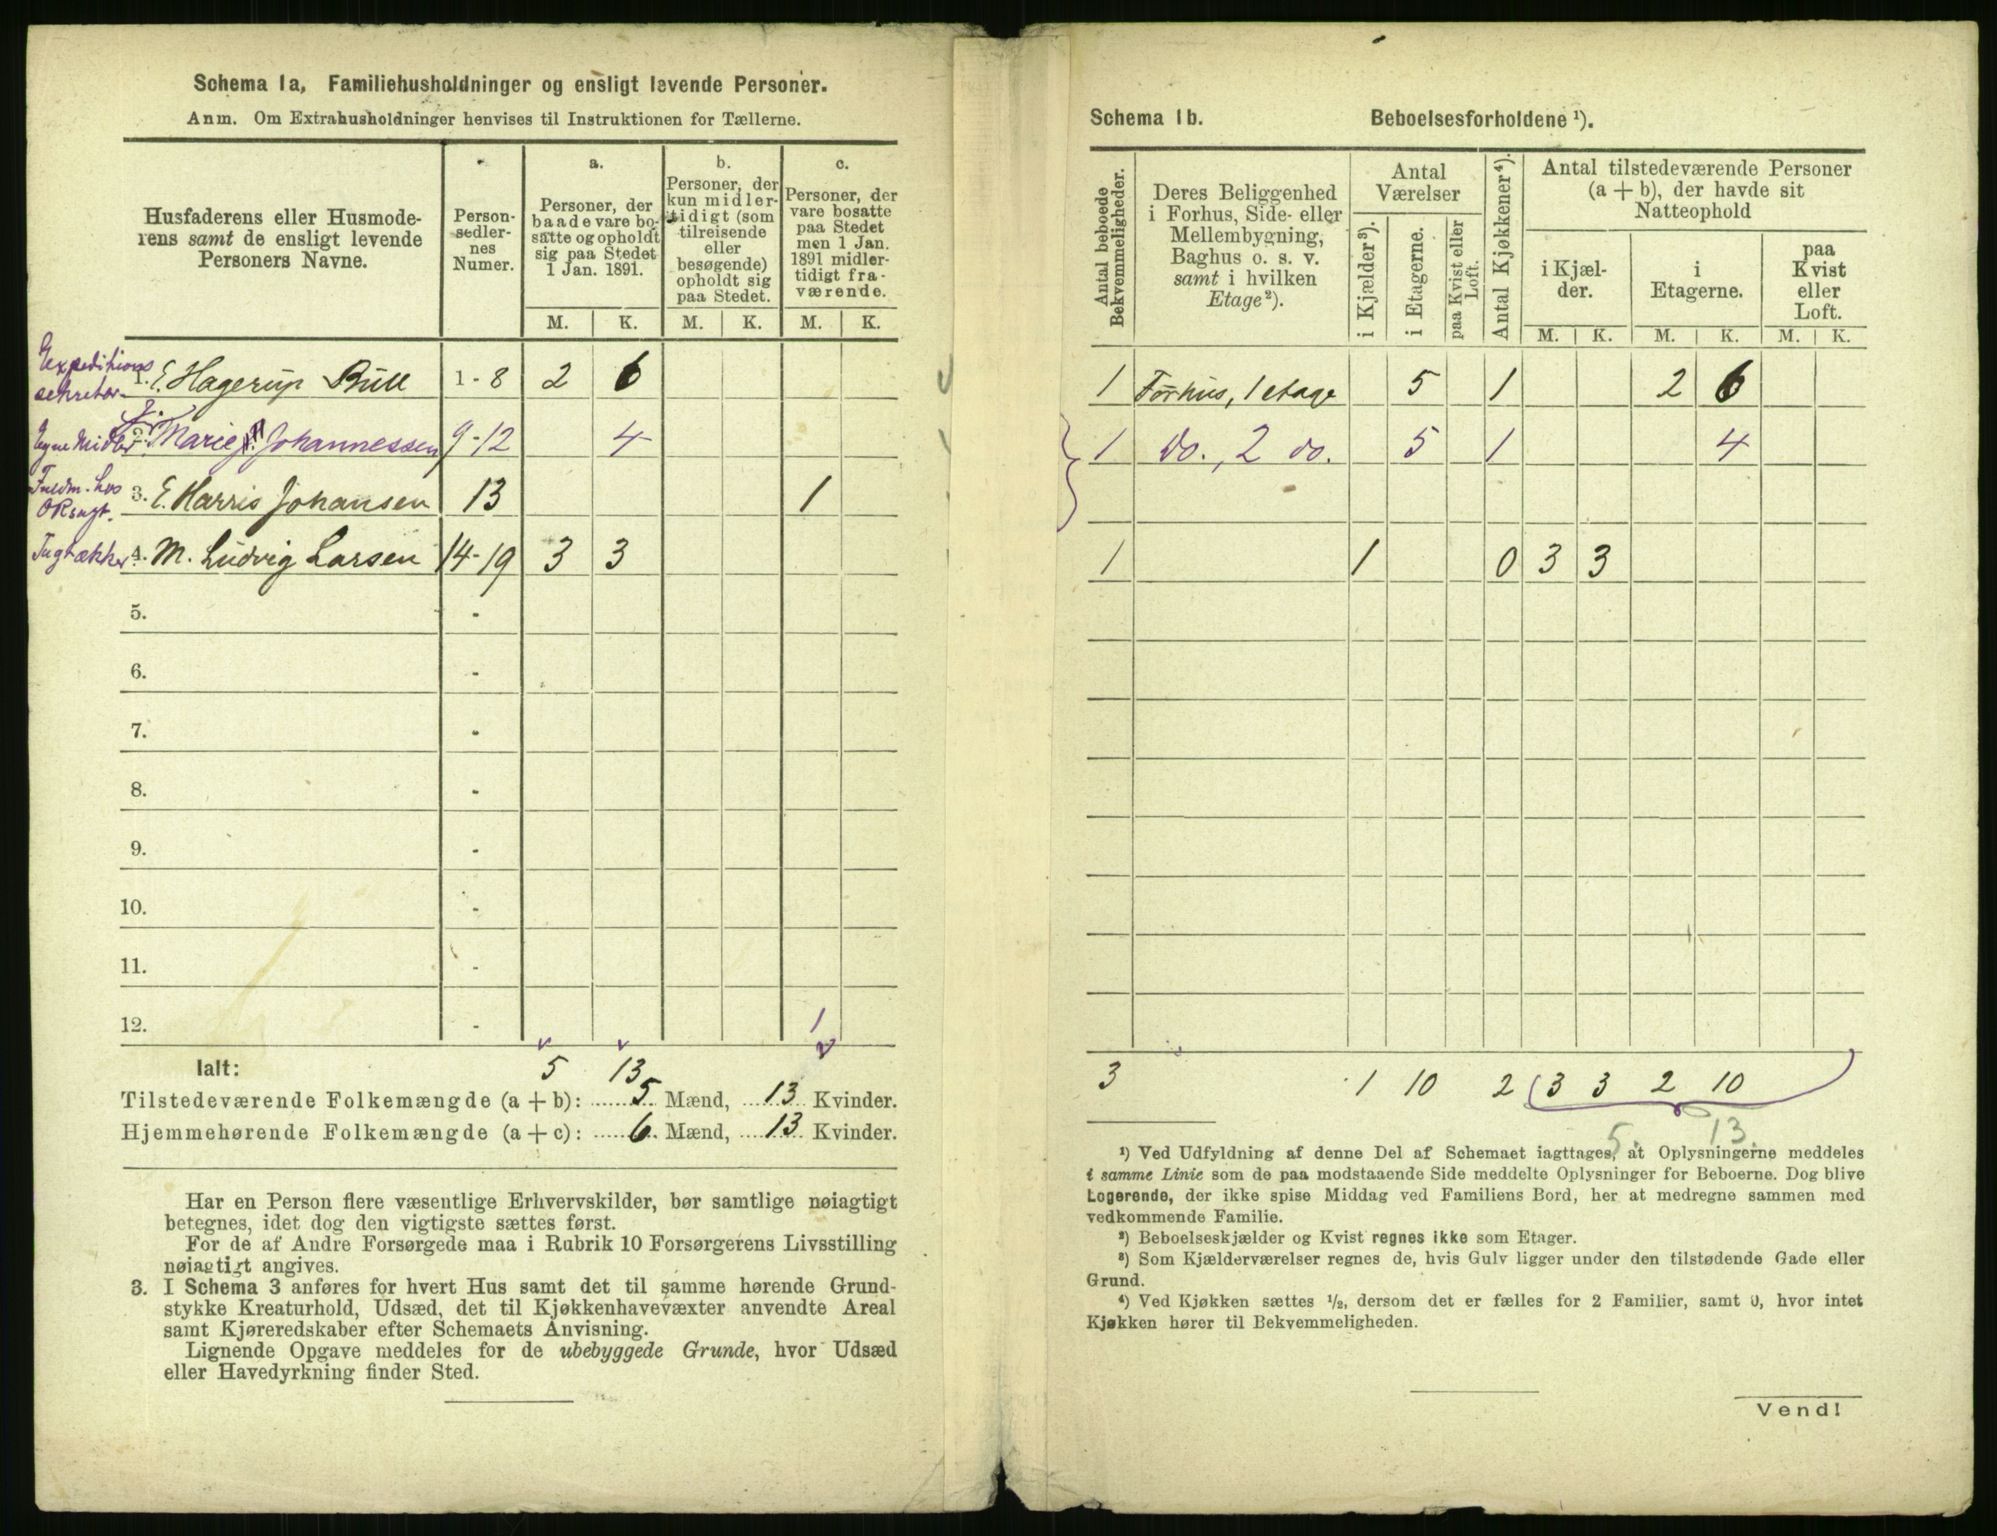 Schema 1a, Familiehusholdninger og ensligt levende Personer.
Anm. Om Extrahusholdninger henvises til Instruktionen for Tællerne.
Husfaderens eller Husmode-
rens samt de ensligt levende
Personers Navne.
Person-
sedler-
nes
Numer.
a.
Personer, der
baade vare bo-
satte og opholdt
sig paa Stedet
1 Jan. 1891.
b.
Personer, der
kun midler-
tidigt (som
tilreisende
eller
besøgende)
opholdt sig
paa Stedet.
c.
Personer, der
vare bosatte
paa Stedet
men 1 Jan.
1891 midler-
tidigt fra-
værende.
M. K. M. K. M. K.
Expeditions
sekretær
1. E. Hagerup Bull 1 - 8 2 6
Egne Midler 2. Marie Johannessen 9-12 4
Fuldm. hos
3. E. Harris Johansen 13 1
Tagtækker 4. M. Ludvig Larsen 14-19 3 3
5. -
6. -
7. -
8. -
9. -
10. -
11. -
12. - 1
Ialt: 5 13
Tilstedeværende Folkemængde (a + b): 5 Mænd, 13 Kvinder.
Hjemmehørende Folkemængde (a + c): 6 Mænd, 13 Kvinder.
Har en Person flere væsentlige Erhvervskilder, bør samtlige nøiagtigt
betegnes, idet dog den vigtigste sættes først.
For de af Andre Forsørgede maa i Rubrik 10 Forsørgerens Livsstilling
nøiagtigt angives.
3. I Schema 3 anføres for hvert Hus samt det til samme hørende Grund-
stykke Kreaturhold, Udsæd, det til Kjøkkenhavevæxter anvendte Areal
samt Kjøreredskaber efter Schemaets Anvisning.
Lignende Opgave meddeles for de ubebyggede Grunde, hvor Udsæd
eller Havedyrkning finder Sted.
Schema 1b. Beboelsesforholdene ¹).
Antal beboede
Bekvemmeligheder.
Deres Beliggenhed
i Forhus, Side- eller
Mellembygning,
Baghus o. s. v.
samt i hvilken
Etage²).
Antal
Værelser
i Kjælder³).
i Etagerne.
paa Kvist eller
Loft.
Antal Kjøkkener⁴).
Antal tilstedeværende Personer
(a + b), der havde sit
Natteophold
i Kjæl-
der.
i
Etagerne.
paa
Kvist
eller
Loft.
M. K. M. K. M. K.
1 Forhus, 1 etage 5 1 2 6
1 do., 2 do. 5 1 4
1 1 0 3 3
3 1 10 2 3 3 2 10
5 13
¹) Ved Udfyldning af denne Del af Schemaet iagttages, at Oplysningerne meddeles
i samme Linie som de paa modstaaende Side meddelte Oplysninger for Beboerne. Dog blive
Logerende, der ikke spise Middag ved Familiens Bord, her at medregne sammen med
vedkommende Familie.
²) Beboelseskjælder og Kvist regnes ikke som Etager.
³) Som Kjælderværelser regnes de, hvis Gulv ligger under den tilstødende Gade eller
Grund.
⁴) Ved Kjøkken sættes ¹/₂, dersom det er fælles for 2 Familier, samt 0, hvor intet
Kjøkken hører til Bekvemmeligheden.
Vend!